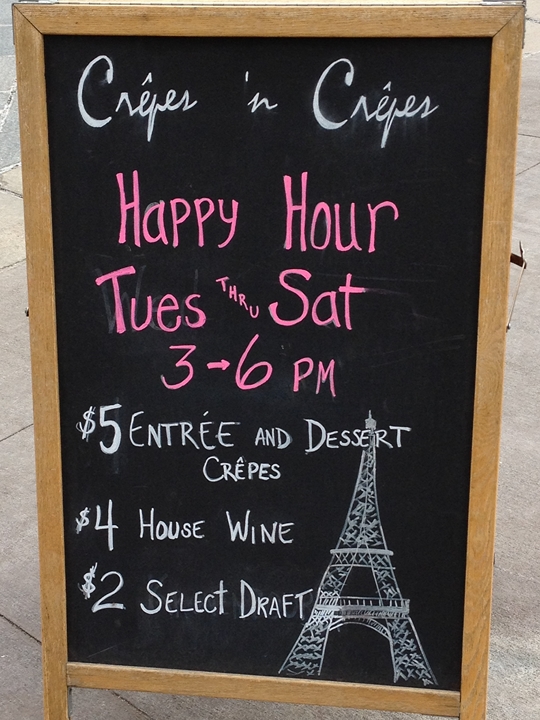 Crêpes 'n Crêpes
Happy Hour
Tues THRU Sat
3→6 PM
$5 ENTRÉE AND DESSERT
CRÊPES
$4 HOUSE WINE
$2 SELECT DRAFT